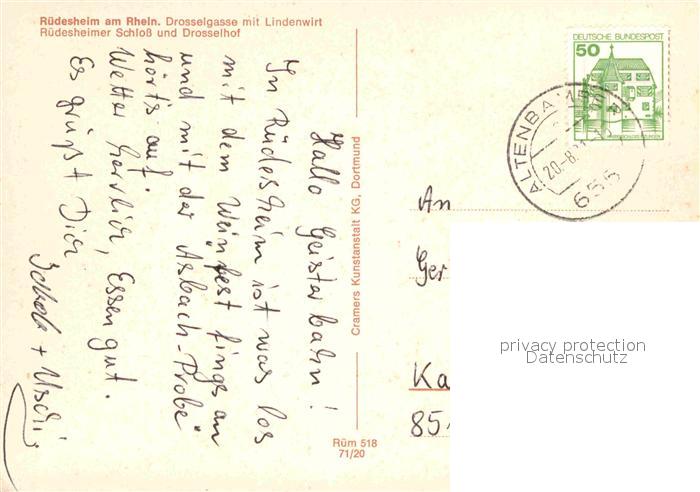 Rüdesheim am Rhein. Drosselgasse mit Lindenwirt
Rüdesheimer Schloß und Drosselhof
Hallo Geisterbahn!
In Rüdesheim ist was los
mit dem Weinfest fings an
und mit der Asbach-Probe
hört's auf.
Wetter herrlich, Essen gut.
Es grüßt Dich
+ Uschi
Cramers Kunstanstalt KG, Dortmund
Rüm 518
71/20
DEUTSCHE BUNDESPOST
50
ALTENBA
20.-8.
655
An
Ger
Ka
85
privacy protection
Datenschutz